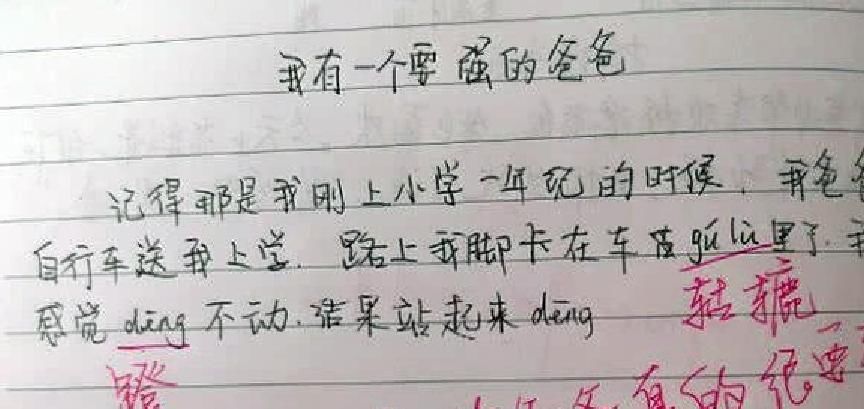 我有一个要强的爸爸
记得那是我刚上小学一年纪的时候，我爸爸
自行车送我上学．路上我脚卡在车轱gú lù里了．我
感觉 dēng 不动．结果站起来 dēng
轱辘
蹬
真的很要